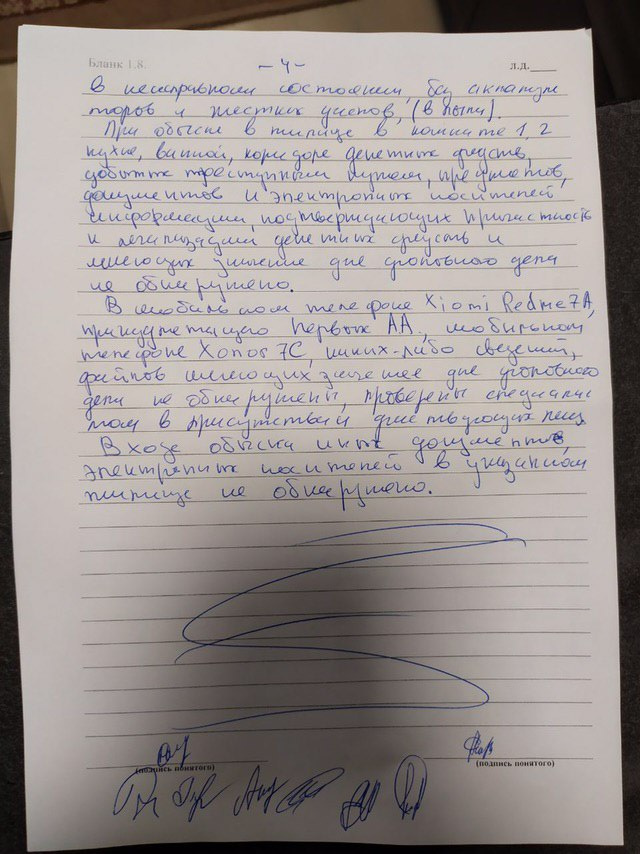 Бланк 1.8.
- 4 -
л.д.
в неисправном состоянии, без аккамуля
торов и жестких дисков, (в пыли).
При обыске в жилище в комнате 1, 2
кухне, ванной, коридоре денежных средств,
добытых преступным путем, предметов,
документов и электронных носителей
информации, подтверждающих причастность
к легализации денежных средств и
имеющих значение для уголовного дела
не обнаружено.
В мобильном телефоне Xiomi Redme 7A,
принадлежащего Первых А.А., мобильном
телефоне Xonor 7C, каких-либо сведений,
файлов имеющих значение для уголовного
дела не обнаружены, проверены специалис
том в присутствии участвующих лиц.
В ходе обыска иных документов,
электронных носителей в указанном
жилище не обнаружено.
(подпись понятого)
(подпись понятого)